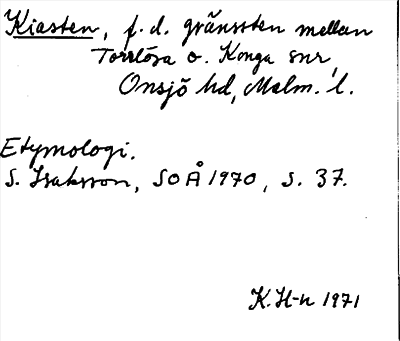 Kiasten, f.d. gränssten mellan
Torrlösa o. Konga snr,
Onsjö hd, Malm. l.
Etymologi.
S. Isaksson, SOÅ 1970, s. 37.
K. H-n 1971